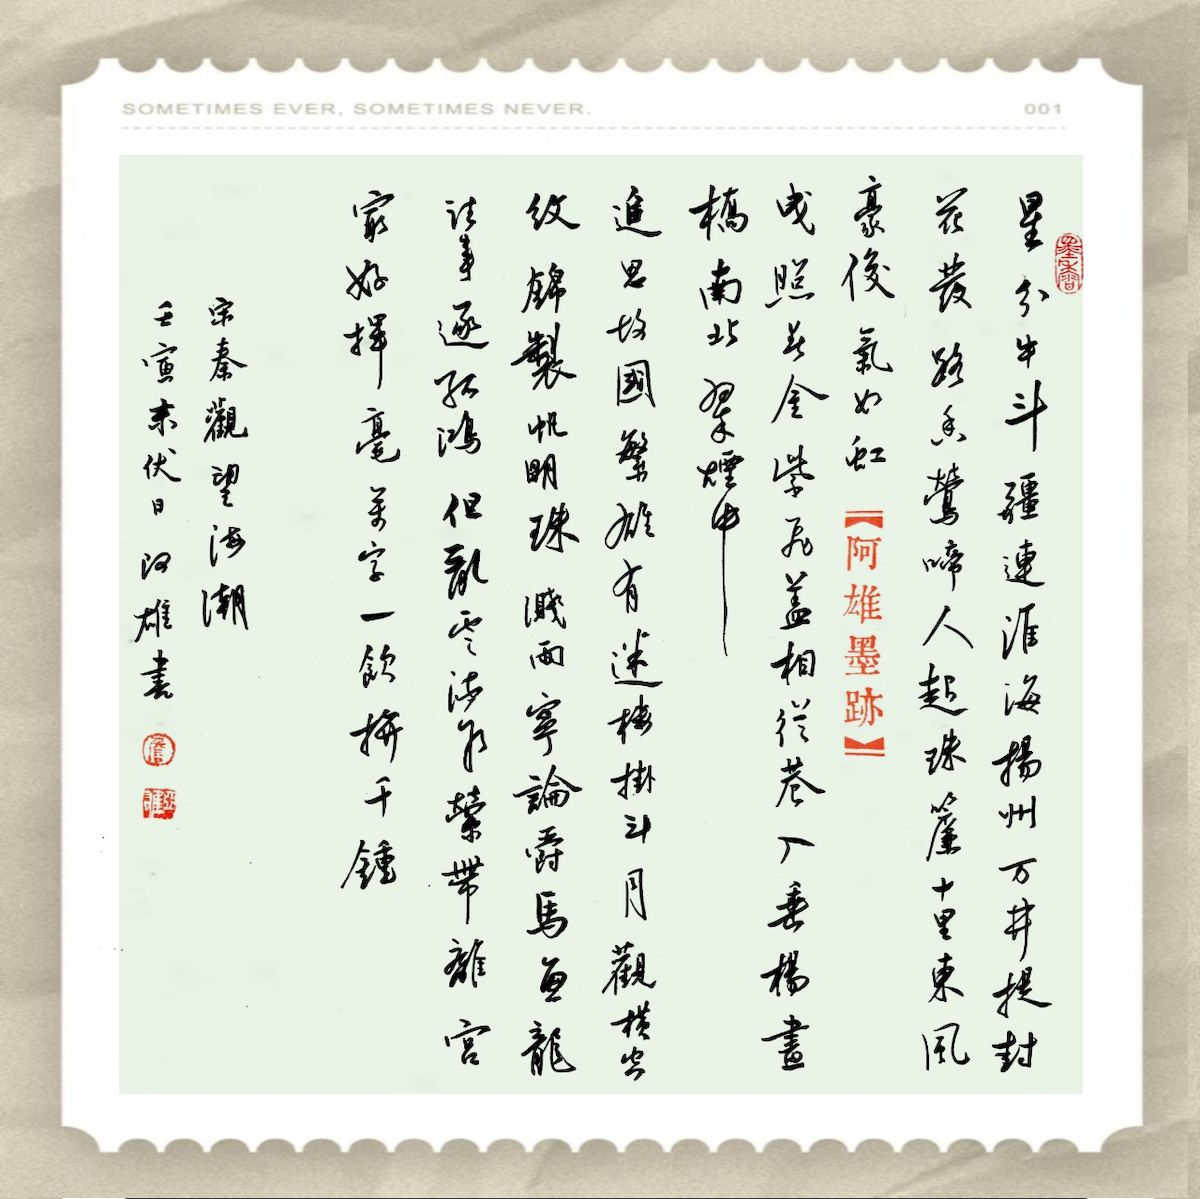 SOMETIMES EVER, SOMETIMES NEVER.
001
墨香
星分牛斗疆連淮海揚州万井提封
花發路香鶯啼人起珠簾十里東風
豪俊氣如虹
【阿雄墨跡】
曳照春金紫飛蓋相從巷入垂楊畫
橋南北翠煙中
追思故國繁雄有迷樓掛斗月觀橫空
紋錦製帆明珠濺雨寧論爵馬魚龍
往事逐孤鴻但亂雲流水縈帶離宮
最好揮毫萬字一飲拚千鍾
宋秦觀望海潮
壬寅末伏日阿雄書